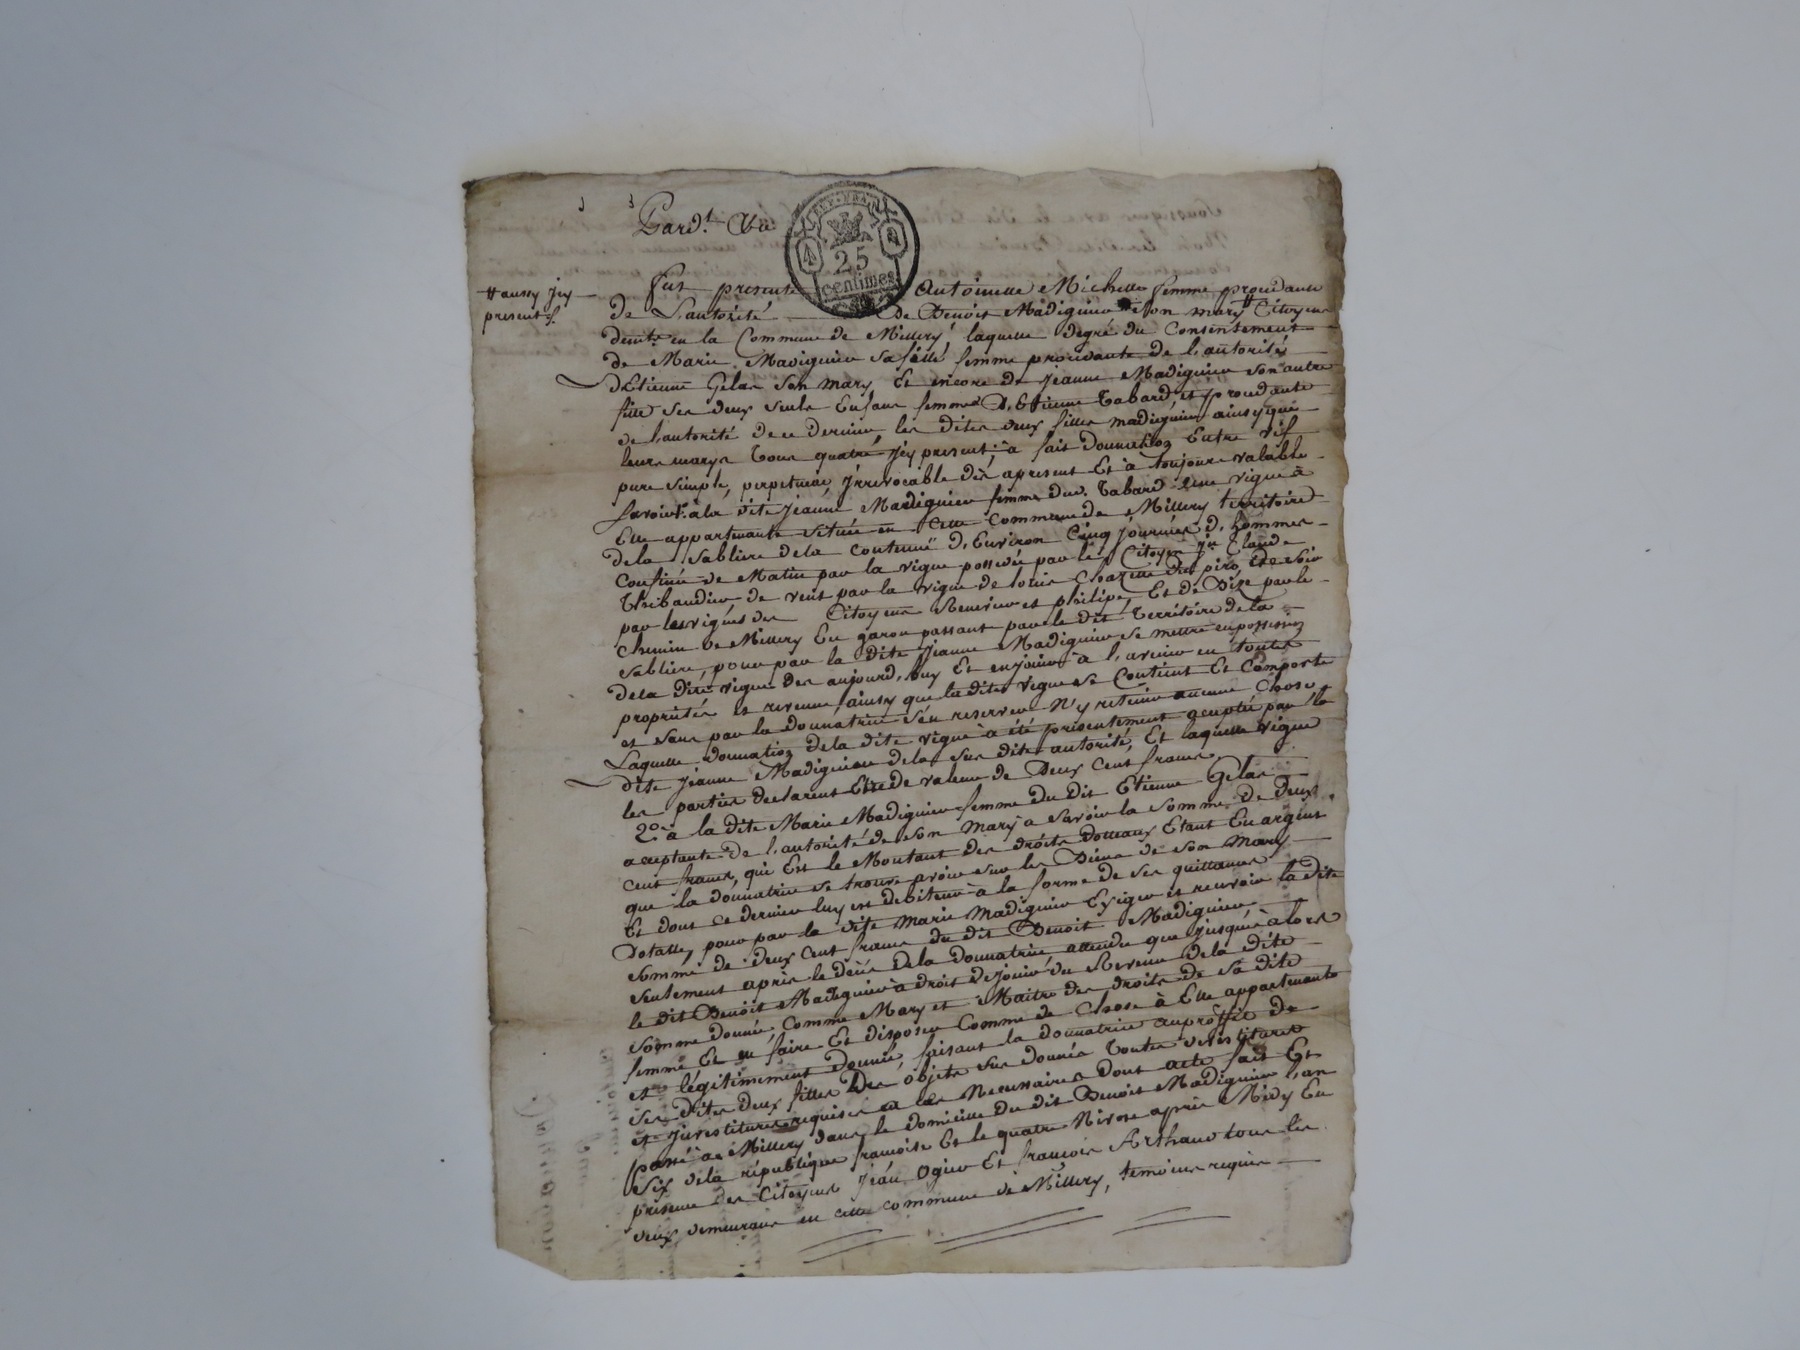 Pard.t
REP. FRA.
25
centimes
# aussy jcy
present
fut presente Antoinette Michelle femme procedante
de L'autorité de Benoit Madiguier son mary # Citoyens
demt. en la Commune de Millery, laquelle degré du Consentement
de Marie Madiguier sa fille femme procedante de L'autorité
d'Etienne Gelas son mary, Et encore de Jeanne Madiguier son autre
fille ses deux seuls Enfans femme d'Etienne Tabard, et procedante
de l'autorité de ce dernier, les dites deux filles madiguier ainsy que
leurs marys tous quatre jcy present; à fait donnation Entre vif
pure simple, perpetuée, jrrevocable dès apresent Et à toujours valable
savoir: à la dite Jeanne Madiguier femme dud. Tabard une vigne à
Elle appartenante située en cette Commune de Millery territoire
de la Sabliere de la contenue d'Environ Cinq journées d'hommes
Confinée de Matin par la vigne possedée par le Citoyen Jn Claude
Thibaudier de vent par la vigne de Louis Chazette du piro, de soir
par les vignes des Citoyens et philipe, Et de Bize par le
chemin de Millery En garon passant par le dit Territoire de la
Sabliere, pour par la dite Jeanne Madiguier se mettre en possession
de la dite vigne des aujourd'huy Et en jouir à l'avenir en toutes
proprietés et revenus, ainsy que la dite vigne se Contient Et Comporte
et sans par la donnatrice s'en reserver n'y retenir aucune Chose
Laquelle donnation de la dite vigne à été presentement aceptée par la
dite Jeanne Madiguier de la sus dite autorité, Et laquelle vigne
les parties declarent Etre de valeur de Deux Cent francs
2.o à la dite Marie Madiguier femme du dit Etienne Gelas
aceptante de l'autorité de son mary a Savoir la somme de deux
Cent francs, qui Est le Montant des droits dotteaux Etant En argent
que la donnatrice se trouve avoir sur les Biens de son mary
Et dont ce dernier luy est debiteur à la forme de ses quittances
Dotalle, pour par la dite Marie Madiguier Exiger et recevoir la dite
somme de deux Cent francs du dit Benoit Madiguier
seulement après le decès de la donnatrice attendu que jusque à lors
le dit Benoit Madiguier à droit de jouir du Revenu de la dite
somme donnée, Comme Mary et Maitre des droits de sa dite
femme Et en faire Et disposer Comme de Chose à Elle appartenante
et légitimement donnée, faisant la donnatrice auproffit de
ses dites deux filles des objets sus donnés toutes devestitures
et jnvestitures requises et Necessaires dont acte fait Et
passé à Millery dans le domicille du dit Benoit Madiguier l'an
six de la république francoise Et le quatre Nivose après Midy En
presence des Citoyens Jean Ogier Et francois Arthaud tous les
deux demeurans en cette commune de Millery, temoins requis